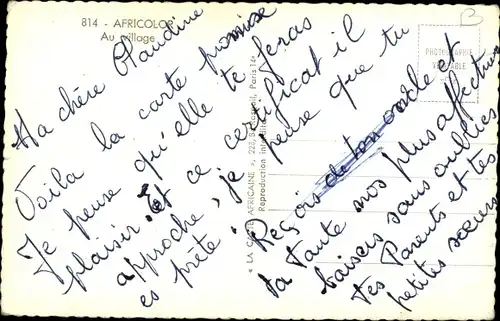 814 - AFRICOLOR
Au village
B
PHOTOGRAPHIE
VÉRITABLE
Ma chère Claudine
Voila la carte promise
Je pense qu'elle te feras
plaisir. Et ce certificat il
approche, je pense que tu
es prête.
Reçois de ton oncle et
ta Tante nos plus affectueux
baisers sans oublier
tes Parents et tes
petites sœurs
« LA CARTE AFRICAINE », Paris 14e
Reproduction interdite